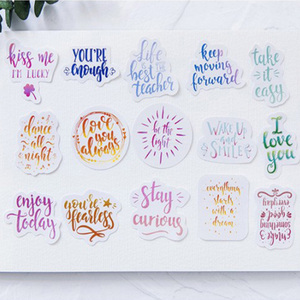 kiss me
I'M LUCKY
YOU'RE
enough
life
is the
best
teacher
keep
moving
forward
take
it
easy
dance
all
night
love
you
always
be the
light
WAKE UP
and
SMILE
I
love
you
enjoy
today
you're
fearless
Stay
curious
everything
starts
with a
dream